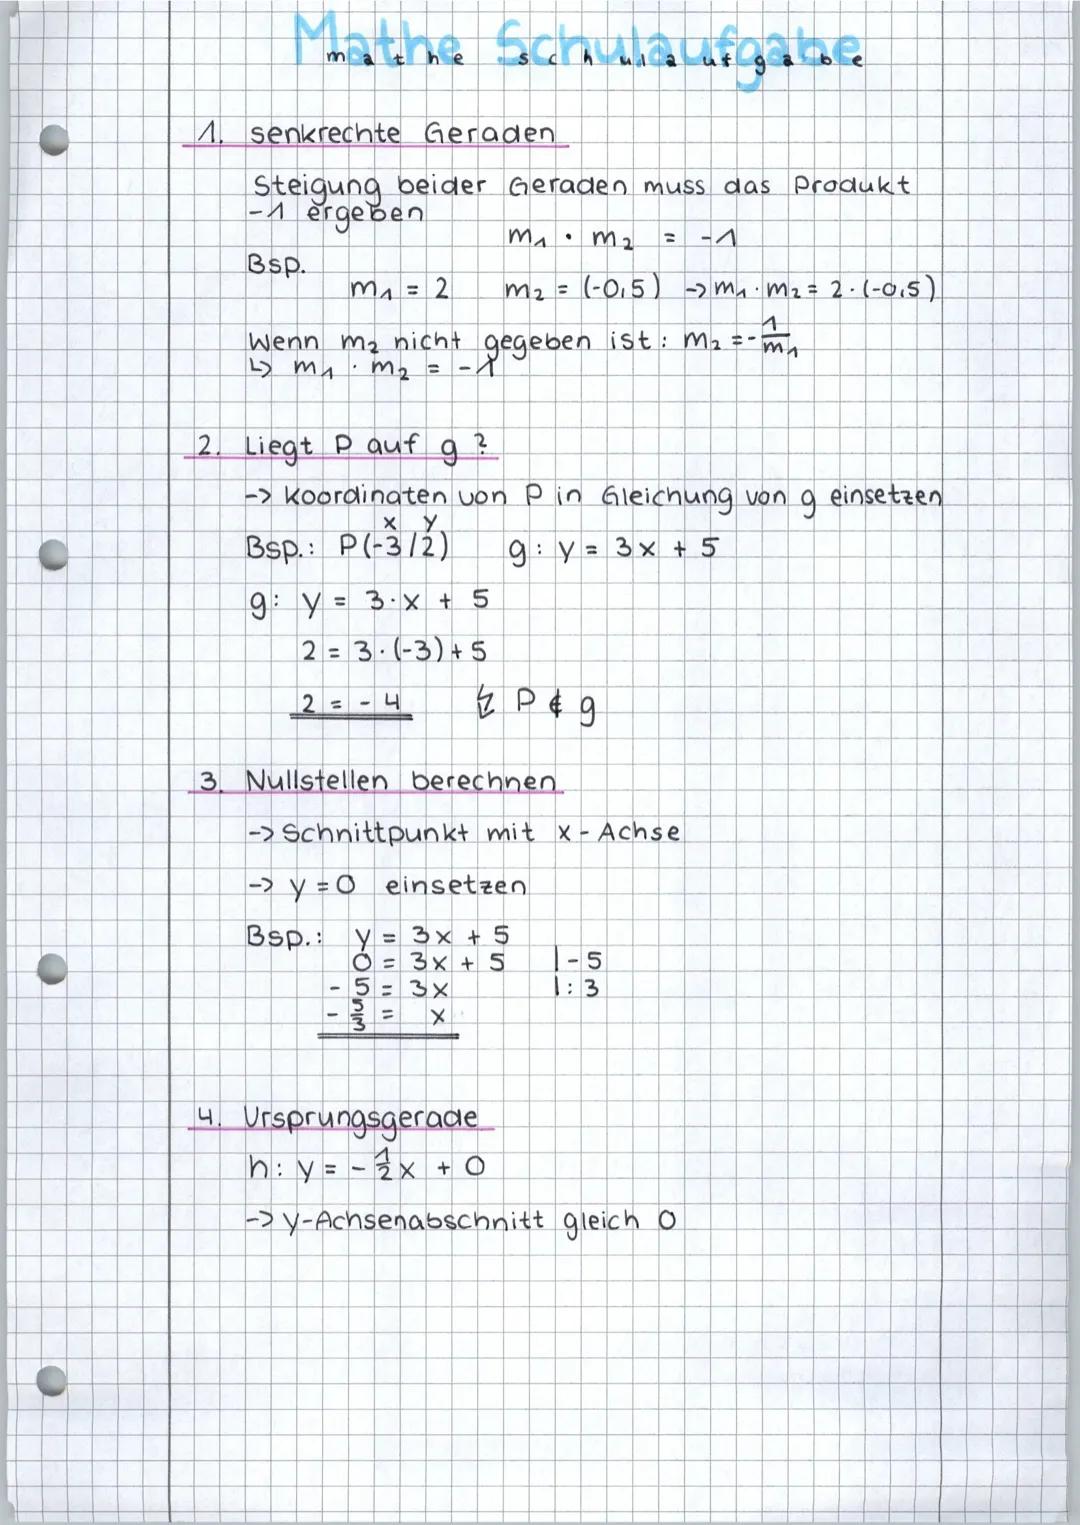 Mathe Schulaufgabe
mathe schulaufgabe
1. senkrechte Geraden
Steigung beider Geraden muss das Produkt
-1 ergeben
m₁ · m₂ = -1
Bsp.
m₁ = 2 m₂ = (-0,5) -> m₁ · m₂ = 2 · (-0,5)
Wenn m₂ nicht gegeben ist: m₂ = -1/m₁
↳ m₁ · m₂ = -1
2. Liegt P auf g?
-> Koordinaten von P in Gleichung von g einsetzen
x y
Bsp.: P(-3/2) g: y = 3x + 5
g: y = 3·x + 5
2 = 3·(-3)+5
2 = -4 ↯ P ∉ g
3. Nullstellen berechnen
-> Schnittpunkt mit x-Achse
-> y=0 einsetzen
Bsp.: y = 3x + 5
0 = 3x + 5 |-5
-5 = 3x |:3
-5/3 = x
4. Ursprungsgerade
h: y = -1/2x + 0
-> y-Achsenabschnitt gleich 0